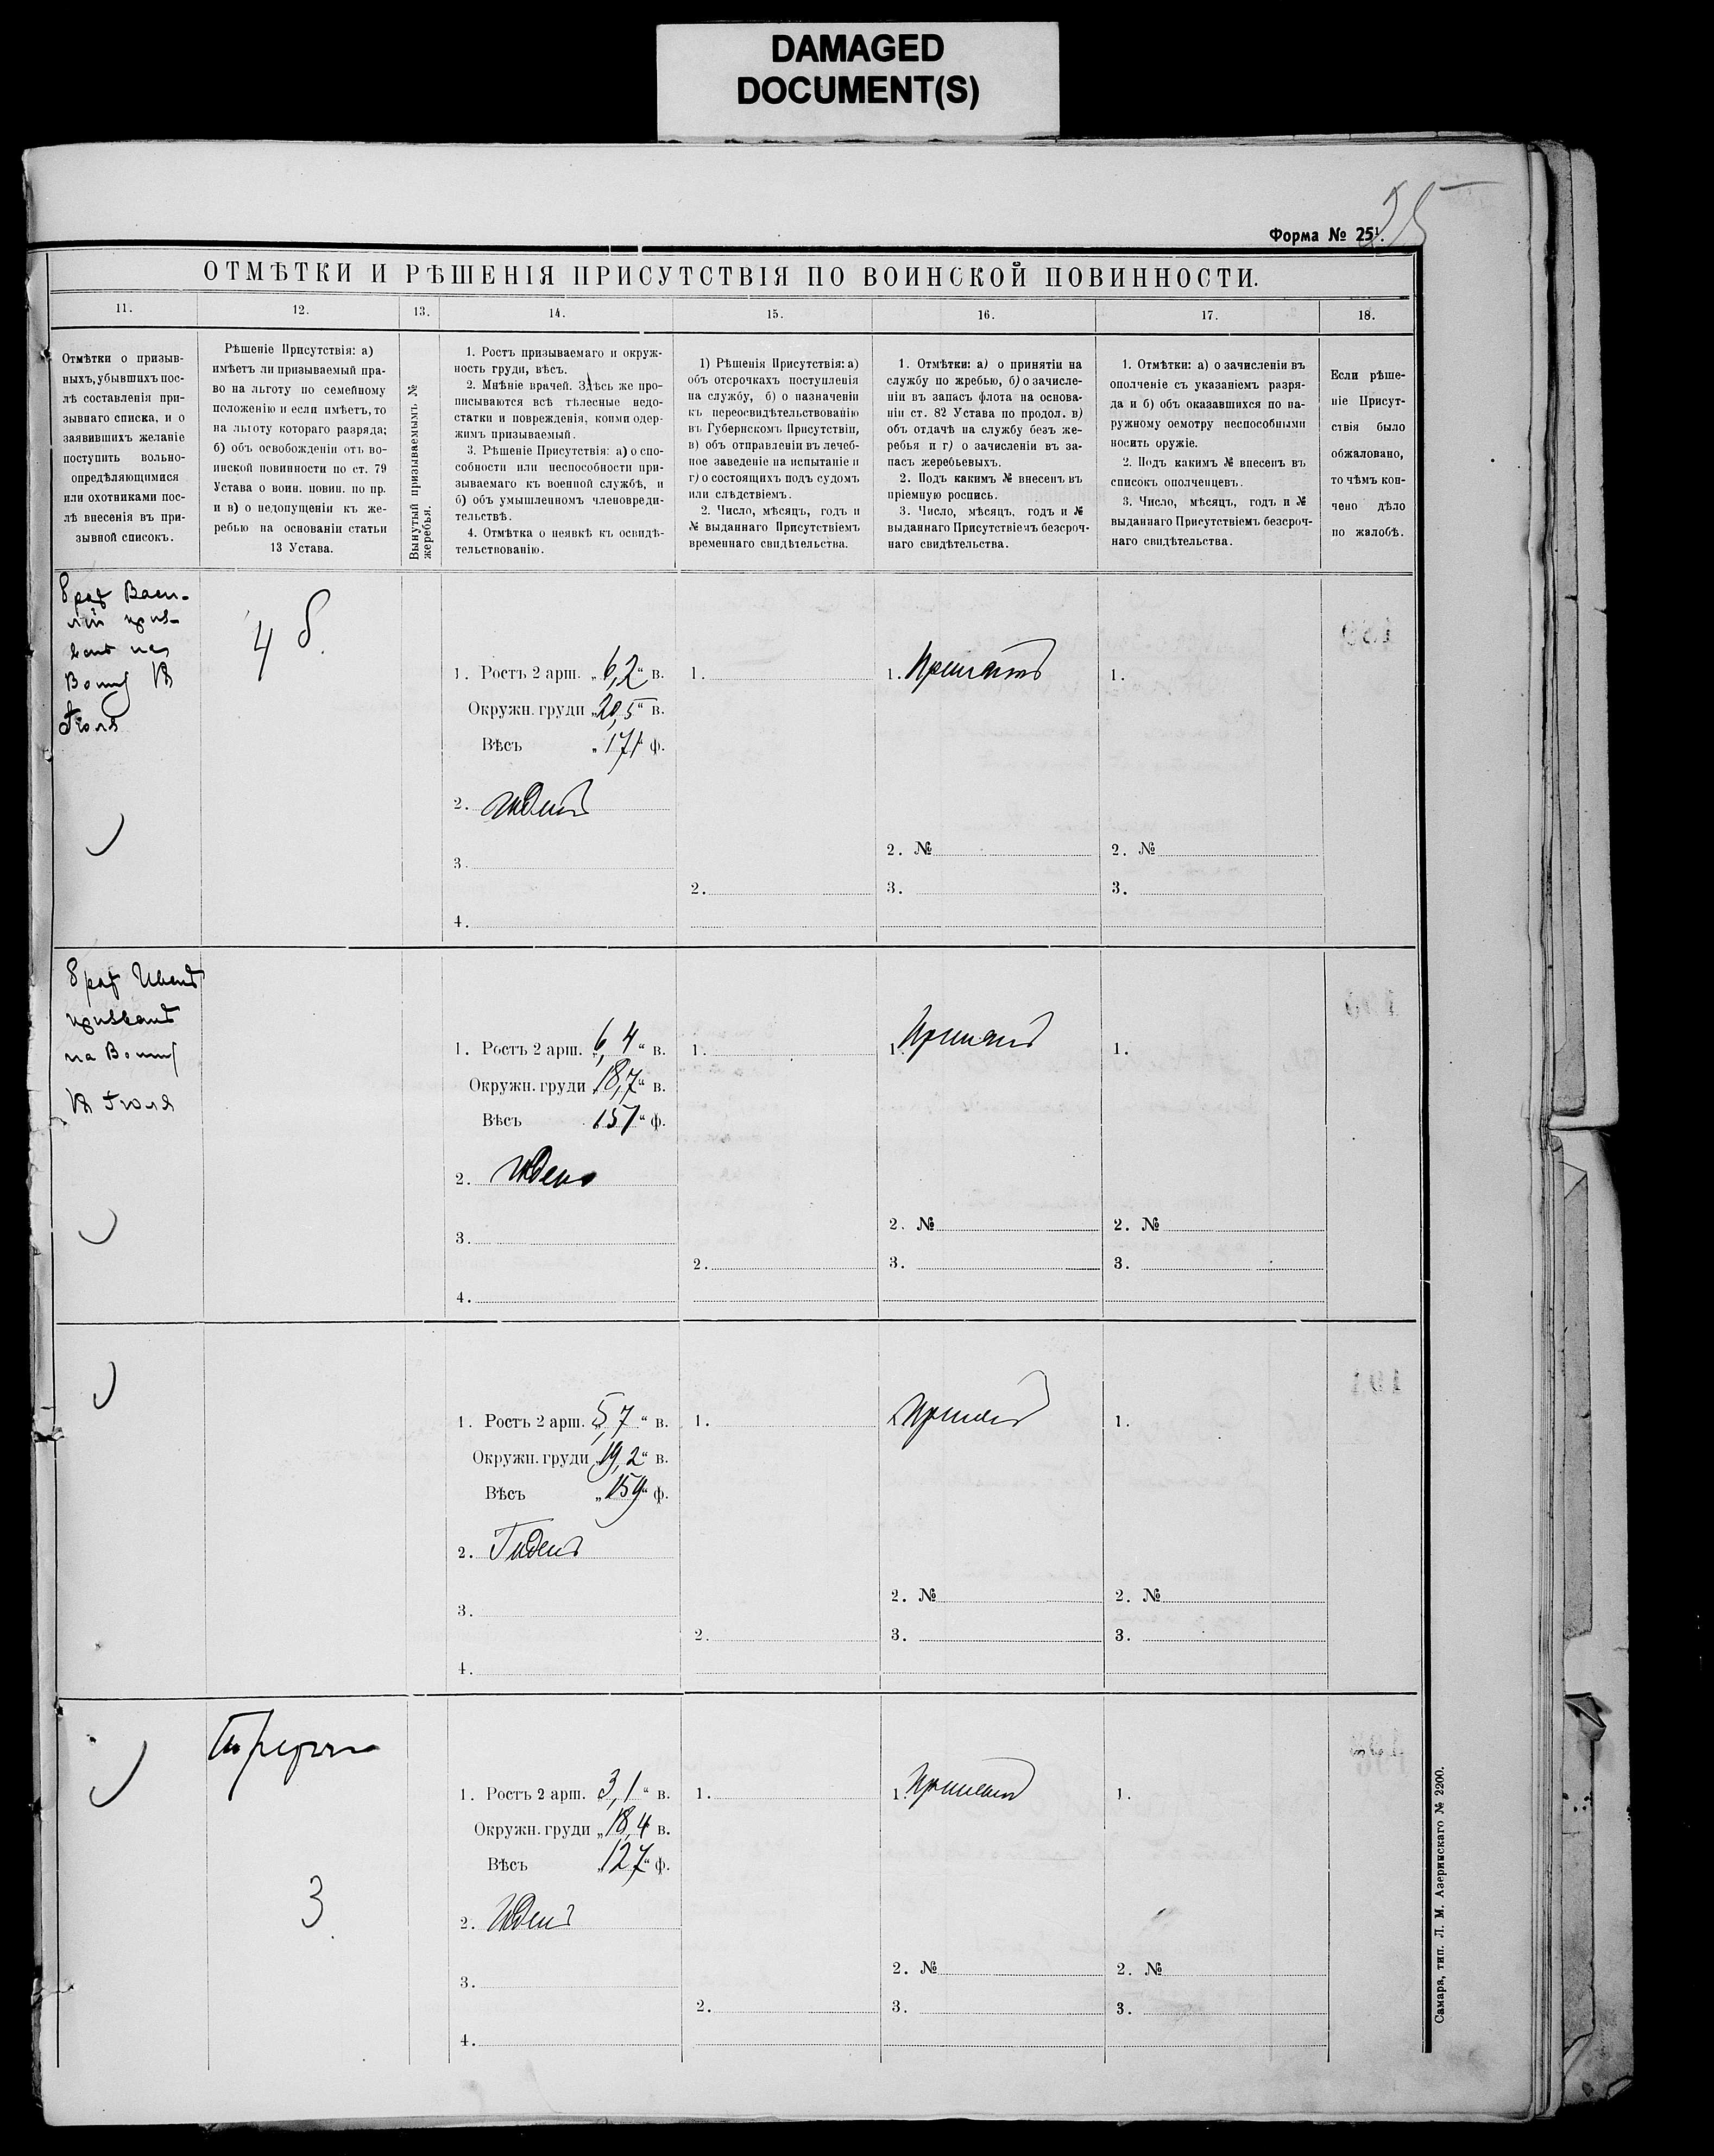 DAMAGED
DOCUMENT(S)
25
Форма № 25¹.
ОТМѢТКИ И РѢШЕНІЯ ПРИСУТСТВІЯ ПО ВОИНСКОЙ ПОВИННОСТИ.
11. 12. 13. 14. 15. 16. 17. 18.
Отмѣтки о призыв-
ныхъ, убывшихъ пос-
лѣ составленія при-
зывнаго списка, и о
заявившихъ желаніе
поступить вольно-
опредѣляющимися
или охотниками пос-
лѣ внесенія въ при-
зывной списокъ.
Рѣшеніе Присутствія: а)
имѣетъ ли призываемый пра-
во на льготу по семейному
положенію и если имѣетъ, то
на льготу котораго разряда;
б) объ освобожденіи отъ во-
инской повинности по ст. 79
Устава о воин. повин. по пр.
и в) о недопущеніи къ же-
ребью на основаніи статьи
13 Устава.
Вынутый призываемымъ №
жеребья.
1. Ростъ призываемаго и окруж-
ность груди, вѣсъ.
2. Мнѣніе врачей. Здѣсь же про-
писываются всѣ тѣлесные недо-
статки и поврежденія, коими одер-
жимъ призываемый.
3. Рѣшеніе Присутствія: а) о спо-
собности или неспособности при-
зываемаго къ военной службѣ, и
б) объ умышленномъ членовреди-
тельствѣ.
4. Отмѣтка о неявкѣ къ освидѣ-
тельствованію.
1) Рѣшенія Присутствія: а)
объ отсрочкахъ поступленія
на службу, б) о назначеніи
къ переосвидѣтельствованію
въ Губернскомъ Присутствіи,
в) объ отправленіи въ лечеб-
ное заведеніе на испытаніе и
г) о состоящихъ подъ судомъ
или слѣдствіемъ.
2. Число, мѣсяцъ, годъ и
№ выданнаго Присутствіемъ
временнаго свидѣтельства.
1. Отмѣтки: а) о принятіи на
службу по жребью, б) о зачисле-
ніи въ запасъ флота на основа-
ніи ст. 82 Устава по продол. в)
объ отдачѣ на службу безъ же-
ребья и г) о зачисленіи въ за-
пасъ жеребьевыхъ.
2. Подъ какимъ № внесенъ въ
пріемную роспись.
3. Число, мѣсяцъ, годъ и №
выданнаго Присутствіемъ безсроч-
наго свидѣтельства.
1. Отмѣтки: а) о зачисленіи въ
ополченіе съ указаніемъ разря-
да и б) объ оказавшихся по на-
ружному осмотру неспособными
носить оружіе.
2. Подъ какимъ № внесенъ въ
списокъ ополченцевъ.
3. Число, мѣсяцъ, годъ и №
выданнаго Присутствіемъ безсроч-
наго свидѣтельства.
Если рѣше-
ніе Присут-
ствія было
обжаловано,
то чѣмъ кон-
чено дѣло
по жалобѣ.
брат Васи-
лій приз-
ванъ на
Войну 18
Іюля
4 б.
1. Ростъ 2 арш. „6,2“ в.
Окружн. груди „20,5“ в.
Вѣсъ „171“ ф.
2. годенъ
3.
4.
1.
2.
1. Принятъ
2. №
3.
1.
2. №
3.
брат Иванъ
призванъ
на Войну
18 Іюля
1. Ростъ 2 арш. 6,4“ в.
Окружн. груди 18,7“ в.
Вѣсъ 157“ ф.
2. Годенъ
3.
4.
1.
2.
1. Принятъ
2. №
3.
1.
2. №
3.
1. Ростъ 2 арш. 5,7“ в.
Окружн. груди 19,2“ в.
Вѣсъ „159“ ф.
2. Годенъ
3.
4.
1.
2.
Принятъ
2. №
3.
1.
2. №
3.
3
1. Ростъ 2 арш. 3,1“ в.
Окружн. груди „18,4 в.
Вѣсъ „127“ ф.
2. Годенъ
3.
4.
1.
2.
1. Принятъ
2. №
3.
1.
2. №
3.
Самара, тип. Л. М. Азеринскаго № 2200.